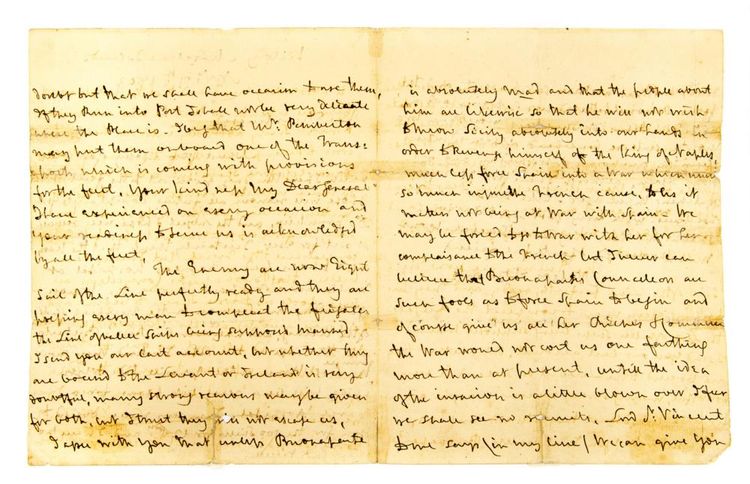 doubt but that we shall have occasion to use them,
if they Run into Port I shall not be very delicate
where the Place is. I beg that Mr. Pemberton
may put them onboard one of the Trans=
ports which is coming with provisions
for the fleet. Your kindness My Dear General
I have experienced on every occasion and
your readiness to serve us is acknowledged
by all the fleet.
The Enemy are now Eight
Sail of the Line perfectly ready and they are
pressing every man to compleat the frigates
the Line of Battle Ships being supposed Manned
I send you our last account, but whether they
are bound to the Levant or Ireland is very
doubtful, many strong reasons may be given
for both, but I trust they will not escape us,
I agree with you that unless Buonaparte
is absolutely mad and that the people about
him are likewise so that he will not wish
to throw Sicily absolutely into our hands in
order to Revenge himself of the King of Naples,
much less force Spain into a War which must
so much injure the French cause, to us it
matters not being at War with Spain — We
may be forced to go to War with her for her
complaisance to the French but I never can
believe that Buonaparte's Councils are
such fools as to force Spain to begin and
of course give us all her Riches &
the War would not cost us one farthing
more than at present, untill the idea
of the invasion is a little blown over I fear
we shall see no recruits. Lord St. Vincent
to me says (in my line) We can give you